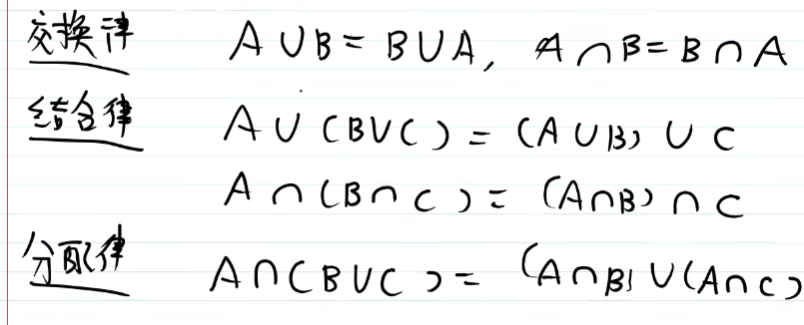 交换律 A∪B=B∪A, A∩B=B∩A
结合律 A∪(B∪C)=(A∪B)∪C
A∩(B∩C)=(A∩B)∩C
分配律 A∩(B∪C)=(A∩B)∪(A∩C)